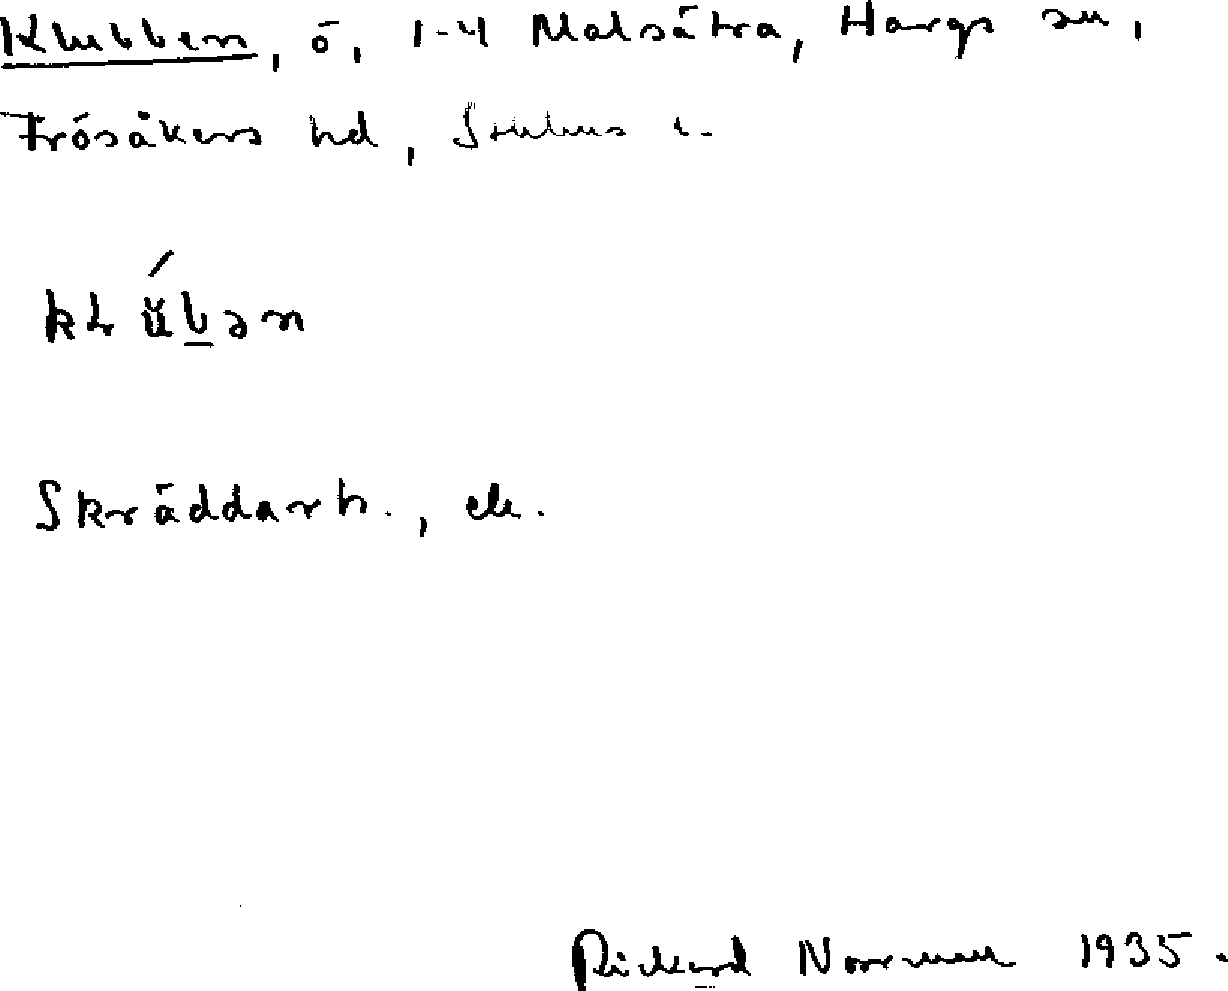 Klubben, ö, 1-4 Malsätra, Hargs sn,
Frösåkers hd, Sthlms l.
klŭ́bən
Skräddarh., ek.
Rickard Norrman 1935.